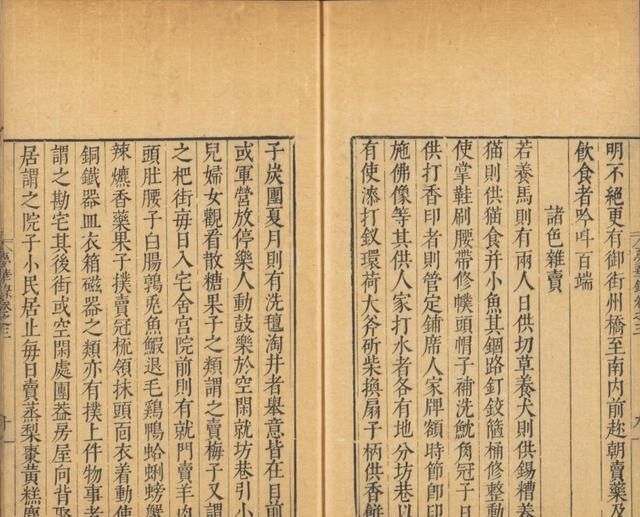 明不絶更有御街州橋至南内前趂朝賣藥及
飲食者吟呌百端
諸色雜賣
若養馬則有兩人日供切草養犬則供餳糟養
猫則供猫食并小魚其錮路釘鉸箍桶修整動
使掌鞋刷腰帶修幞頭帽子補洗魫角冠子日
供打香印者則管定鋪席人家牌額時節即印
施佛像等其供人家打水者各有地分坊巷以
有使漆打釵環荷大斧斫柴換扇子柄供香餅
子炭團夏月則有洗氊淘井者舉意皆在目前
或軍營放停樂人動鼓樂於空閑就坊巷引小
兒婦女觀看散糖果子之類謂之賣梅子又謂
之杷街每日入宅舍宫院前則有就門賣羊肉
頭肚腰子白腸鶉兎魚鰕退毛鷄鴨蛤蜊螃蟹
辣爊香藥果子撲賣冠梳領抹頭靣衣着動使
銅鐵器皿衣箱磁器之類亦有撲上件物事者
謂之勘宅其後街或空閑處團葢房屋向背聚
居謂之院子小民居止每日賣蒸梨棗黄糕麋